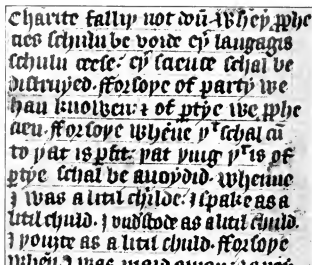 Charite falliþ not doũ. Wheþ̉ ꝓphe
cies schuln be voide eþ̉ langagis
schuln ceese: eþ̉ science schal be
distruyed. fforsoþe of party we
han knowen: ⁊ of ꝑtye we ꝓphe
cien. fforsoþe whẽne þͭ schal cũ
to þat is ꝑfit: þat þing þͭ is of
ꝑtye schal be auoydid. whenne
I was a litil chijlde: I spake as a
litil chijld. I vnd̉stode as a litil chijld.
I þouȝte as a litil chijld. fforsoþe
I was maad